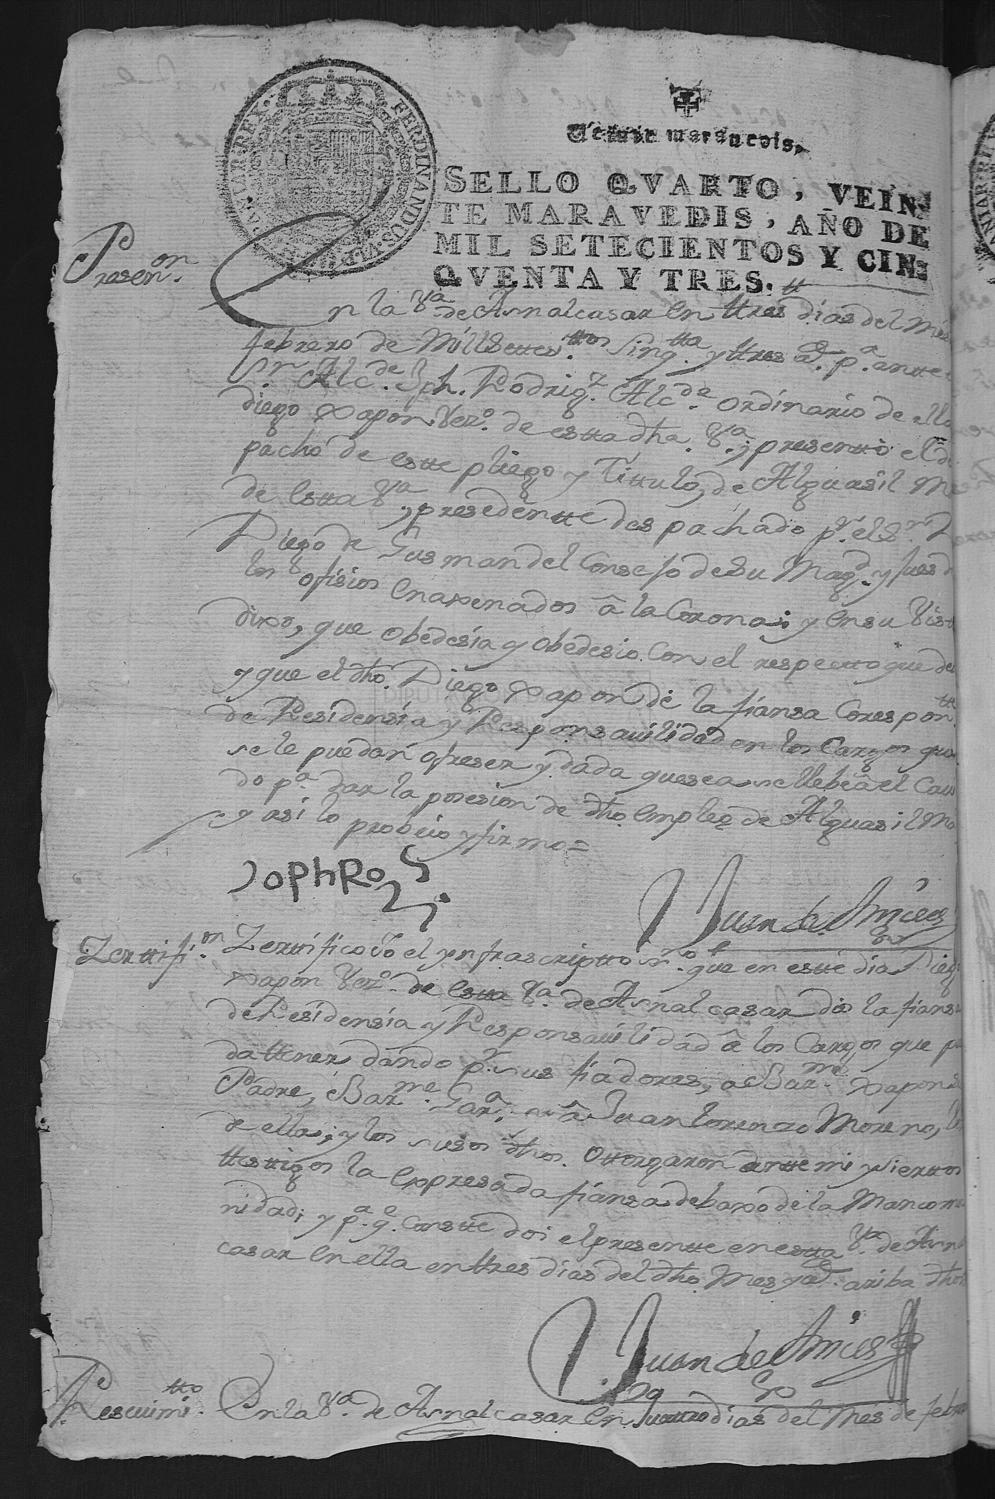 FERDINANDUS VI D G
HISPANIAR REX
Veinte maravedis.
SELLO QVARTO, VEIN-
TE MARAVEDIS, AÑO DE
MIL SETECIENTOS Y CIN-
QVENTA Y TRES.
Presen.on
En la V.a de Asnalcasar en ttres dias del Mes
febrero de Mill Settes.ttos Sinq.tta y ttres a.s p.a antte
Sr. Alc.de Jph. Rodrig.z Alc.de ordinario de ella
diego Xapon Vez.o de estta dha. V.a; presentto el
pacho de este pliego y Tittulo, de Alguasil M
de Estta V.a, presedentte despachado p.r el S.r D
Diego de Gusman del Consejo de Su Mag.d y Jues
los ofisios Enaxenados â la Corona; y en su Vist
dixo, que obedesia y obedesio. Con el respectto que de
y que el dho. Diego Xapon dê la fiansa Corespon.tte
de Residensia y Responsavilidad en los Cargos que
se le puedan ofreser y dada que sea se llebe â el Cau
do p.a dar la posesion de dho. Empleo de Alguasil Ma
y asi lo probeio y firmo =
JophRoz
Juan de
Zerttifi.on
Zerttifico Io el ynfrascriptto ss.no que en este dia Dieg
Xapon Vez.o de Estta V.a de Asnalcasar dio la fians
de Residensia y Responsavilidad â los Cargos que p
da ttener dando p.r sus fiadores, a Bar.me Xapon s
Padre, Bar.me Gar.a Juan Lorenzo Moreno,
de ella; y los susos dhos. Ottorgaron antte mi y siertos
ttesttigos la Expresada fiansa debaxo de la Mancomu
nidad; y p.a q.e Conste doi el presentte en estta V.a de Asn
casar En ella en ttres dias del dho. Mes y a.s ariba dho
Juan de
Resevimi.tto
En la V.a de Asnalcasar En quatro dias del Mes de febr